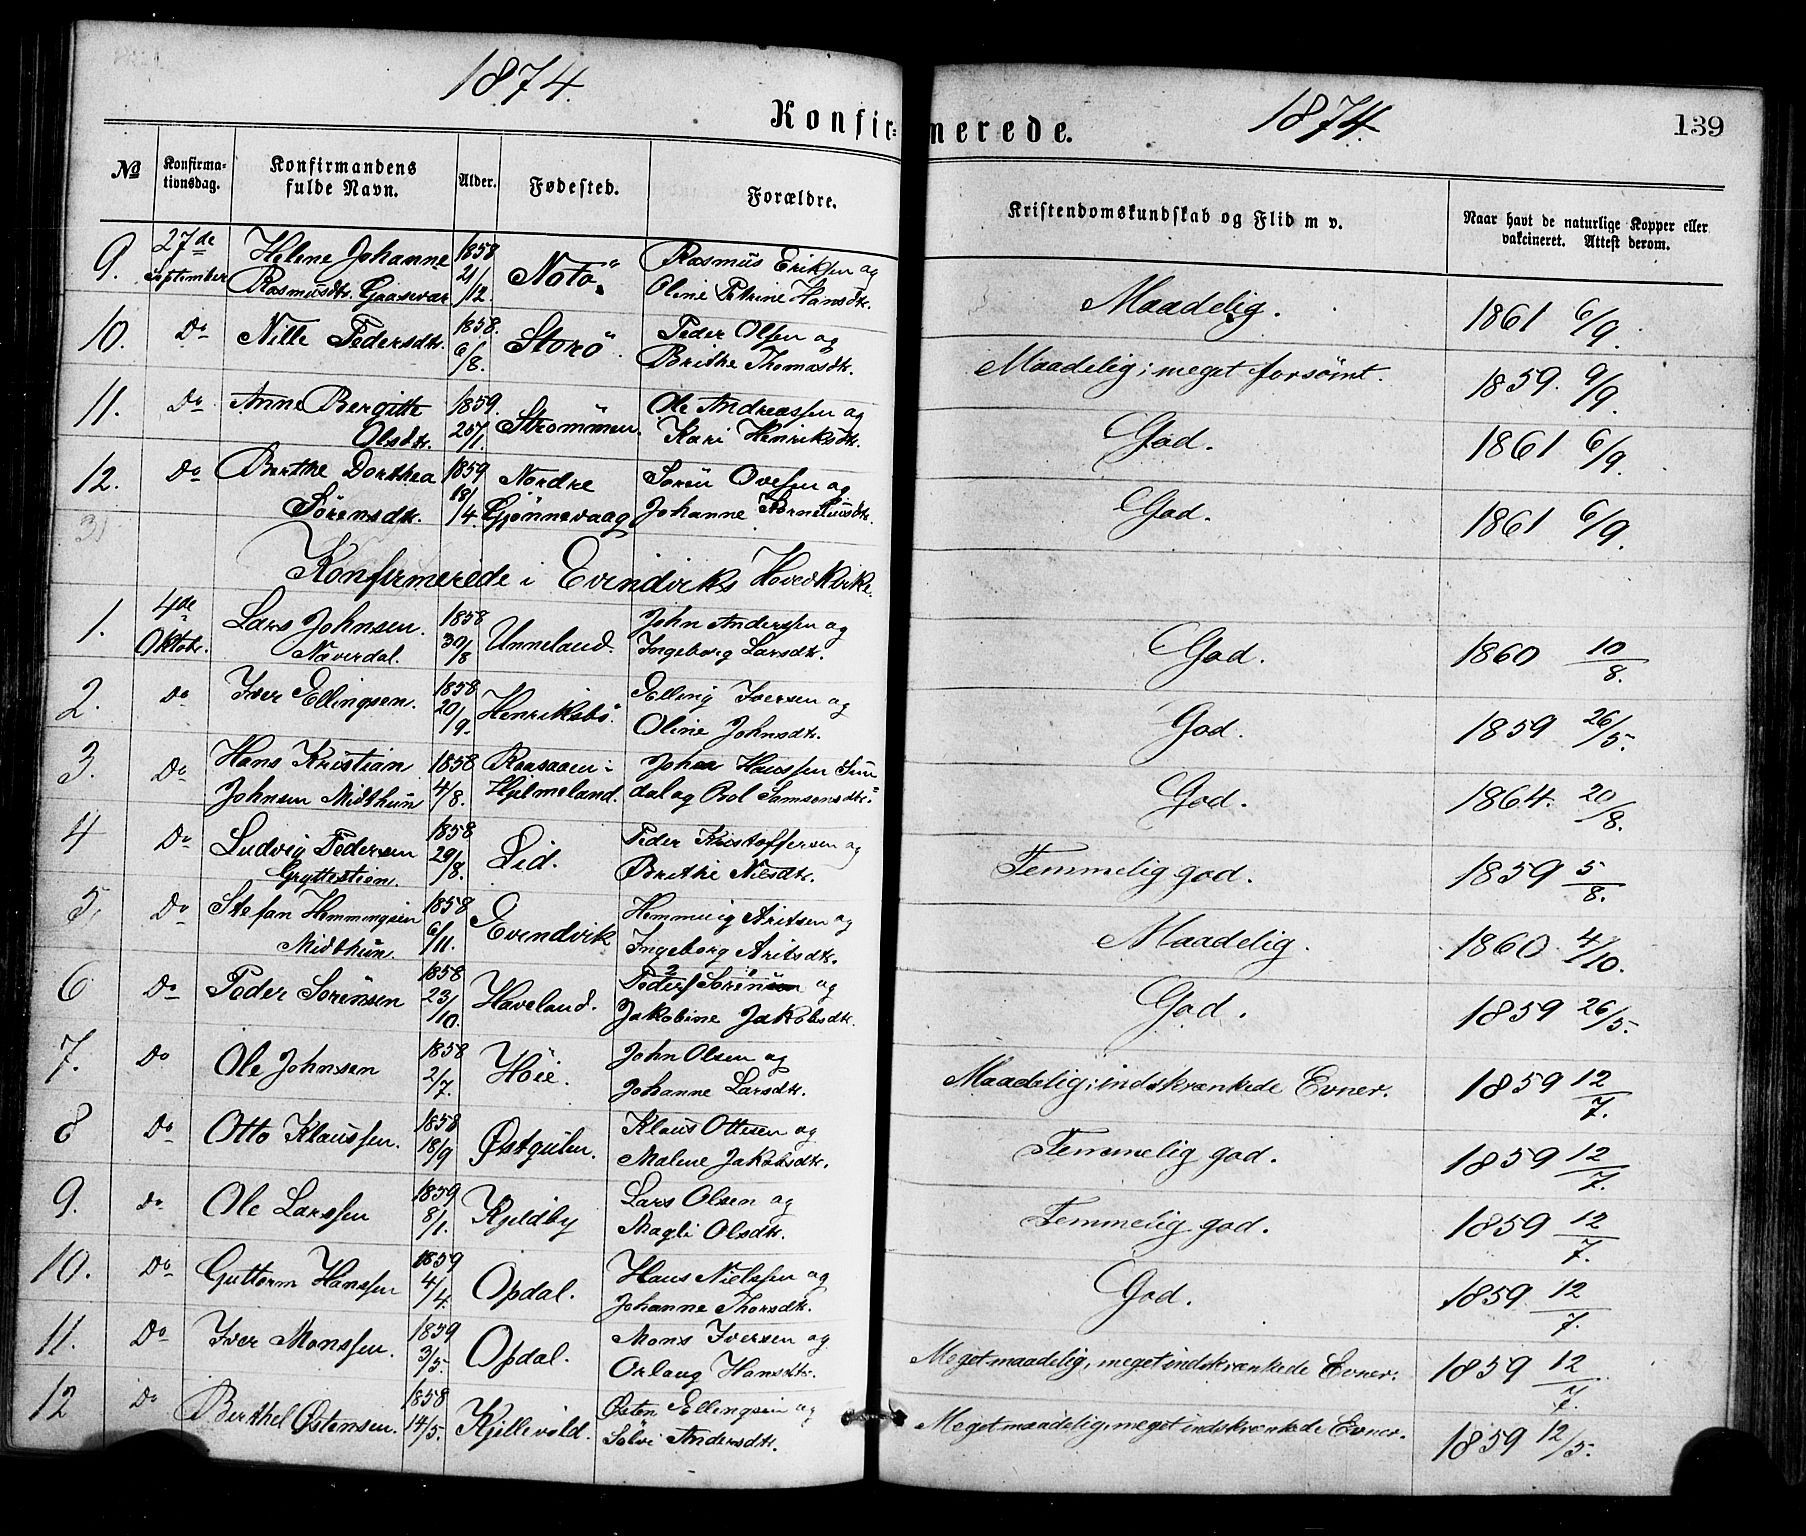 1874.
1874
Konfirmerede.
139
№
Konfirma-
tionsdag.
Konfirmandens
fulde Navn.
Alder.
Fødested.
Forældre.
Kristendomskundskab og Flid m v.
Naar havt de naturlige Kopper eller
vakcineret. Attest derom.
9. 27de Helene Johanne 1858 Notö. Rasmus Eriksen og
September Rasmusdtr. Gaasevær 21/12. Oline Petrine Hansdtr. Maadelig. 1861 6/9.
10. Do Nille Pedersdtr. 1858. Storö. Peder Olsen og
6/8. Brithe Thomasdtr. Maadelig; meget forsömt. 1859. 9/9.
11. Do Anne Bergitte 1859. Strömmen. Ole Andreassen og
Olsdtr. 25/1. Kari Henriksdtr. God. 1861 6/9.
12. Do Berthe Dorthea 1859 Nordre Sören Ovesen og
Sörensdtr. 18/4 Gjönnevaag Johanne Korneliusdtr. God. 1861 6/9.
31
Konfirmerede i Evindviks Hovedkirke.
1. 4de Lars Johnsen. 1858 Unneland. John Anderssen og
Oktobr. Næverdal. 30/8 Ingeborg Larsdtr. God. 1860 10/8.
2. Do Iver Ellingsen. 1858 Henriksbö. Elling Iversen og
20/9. Oline Johnsdtr. God. 1859 26/5.
3. Do Hans Kristian 1858 Raasaaen i Johan Hanssen Sun
Johnsen Midthun 4/8. Hjelmeland. dal og Brol Samsonsdtr. God. 1864. 20/8.
4 Do Ludvig Pedersen 1858 Lid. Peder Kristoffersen og
Gryttestien. 29/8. Brithe Nilsdtr. Temmelig god. 1859 5/8.
5. Do Stefan Hemmingsen 1858 Evindvik Hemming Aritsen og
Midthun. 6/11. Ingeborg Aritsdtr. Maadelig. 1860 4/10.
6 Do Peder Sörensen 1858 Haveland. Peder Sörensen og
23/10. Jakobine Jakobsdtr. God. 1859 26/5.
7. Do Ole Johnsen 1858 Höie. John Olsen og
2/7. Johanne Larsdtr. Maadelig; indskrænkede Evner. 1859 12/7.
8 Do Otto Klaussen. 1858 Østgulen. Klaus Ottesen og
18/9 Malene Jakobsdtr. Temmelig god. 1859 12/7.
9. Do Ole Larssen 1859 Kjeldby Lars Olsen og
8/1. Magli Olsdtr. Temmelig god. 1859 12/7.
10. Do Guttorm Hanssen 1859 Opdal. Hans Nielssen og
4/4. Johanne Thorsdtr. God. 1859 12/7.
11. Do Iver Monssen. 1859 Opdal. Mons Iversen og
3/5. Orlaug Hansdtr. Meget maadelig, meget indskrænkede Evner. 1859 12/7.
12 Do Berthel Østensen. 1858 Kjellevold. Østen Ellingsen og
14/5. Sølvi Andersdtr. Meget maadelig, meget indskrænkede Evner. 1859 12/5.